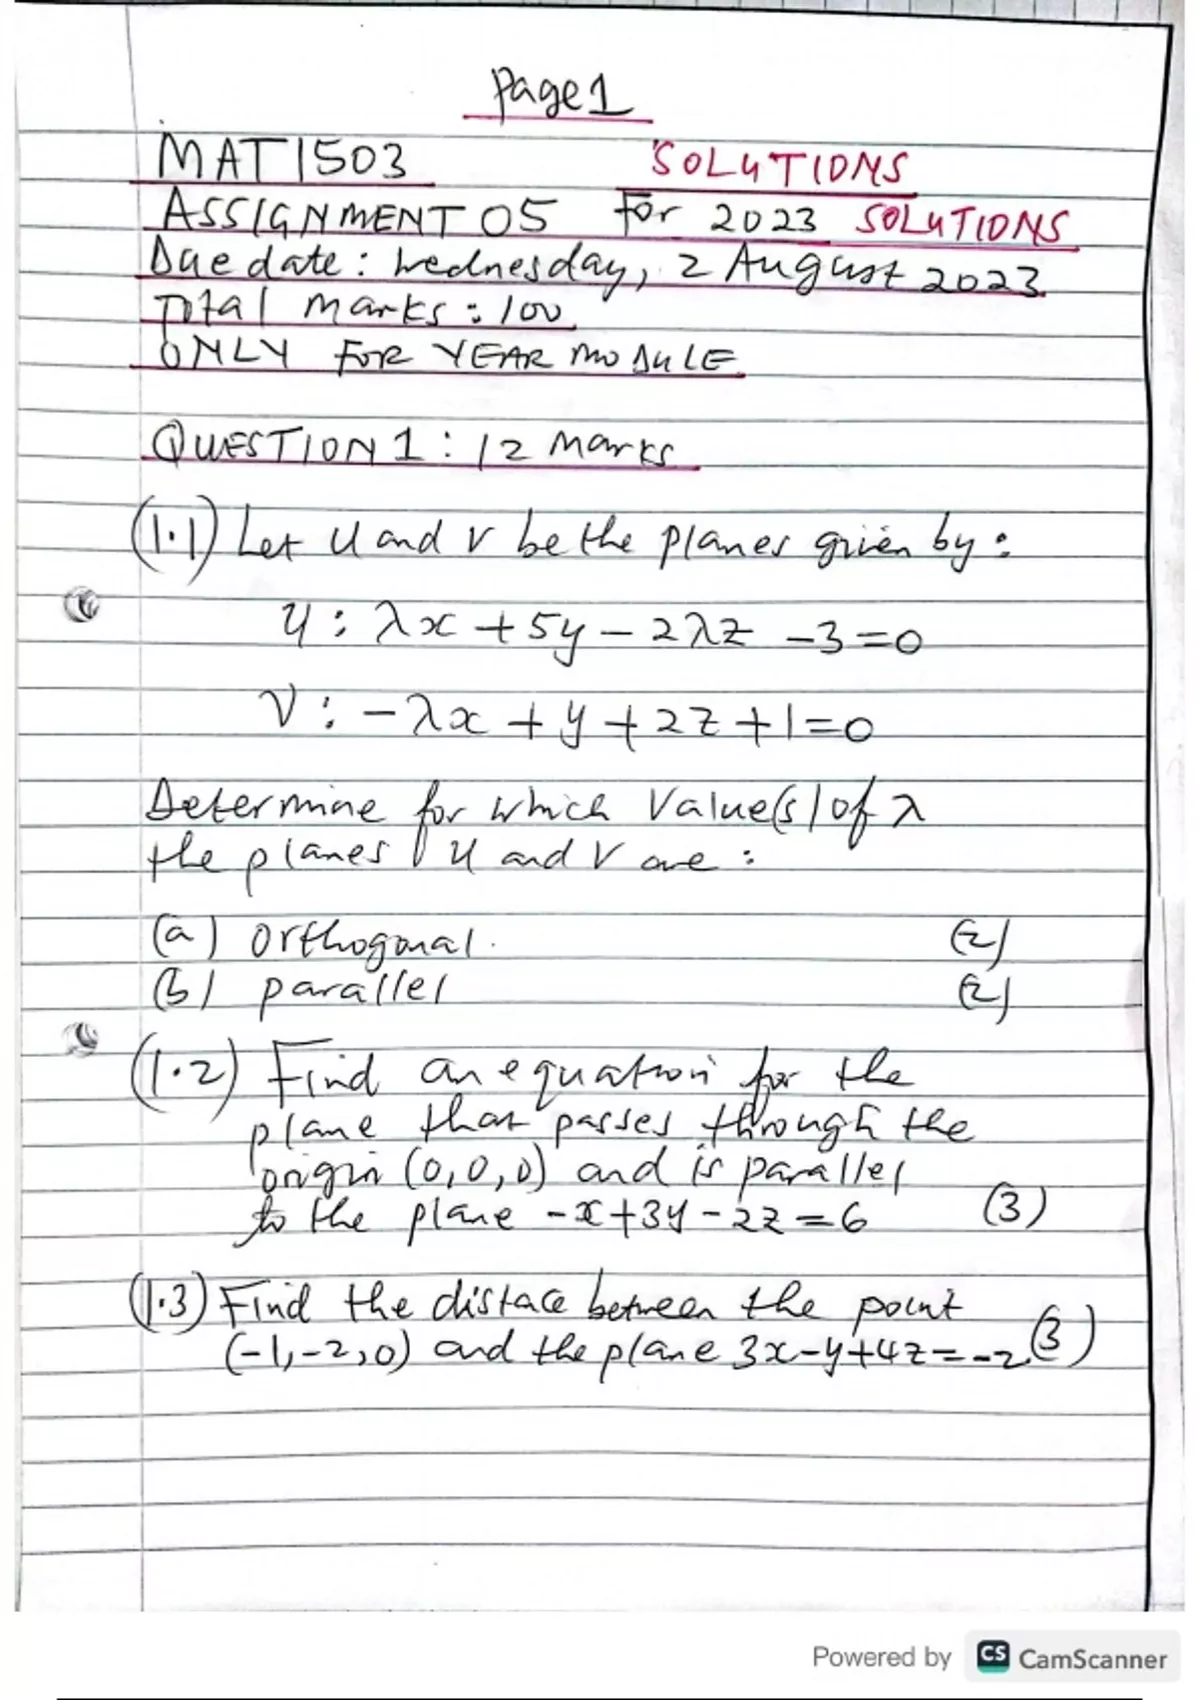 Page 1
MAT1503 SOLUTIONS
ASSIGNMENT 05 For 2023 SOLUTIONS
Due date: Wednesday, 2 August 2023
Total marks: 100
ONLY FOR YEAR MODULE
QUESTION 1: 12 Marks
(1.1) Let U and V be the planes given by:
U: λx + 5y - 2λz - 3 = 0
V: -λx + y + 2z + 1 = 0
Determine for which value(s) of λ
the planes U and V are:
(a) orthogonal. (2)
(b) parallel (2)
(1.2) Find an equation for the
plane that passes through the
origin (0,0,0) and is parallel
to the plane -x+3y-2z=6 (3)
(1.3) Find the distace between the point
(-1,-2,0) and the plane 3x-y+4z=-2. (3)
Powered by CS CamScanner